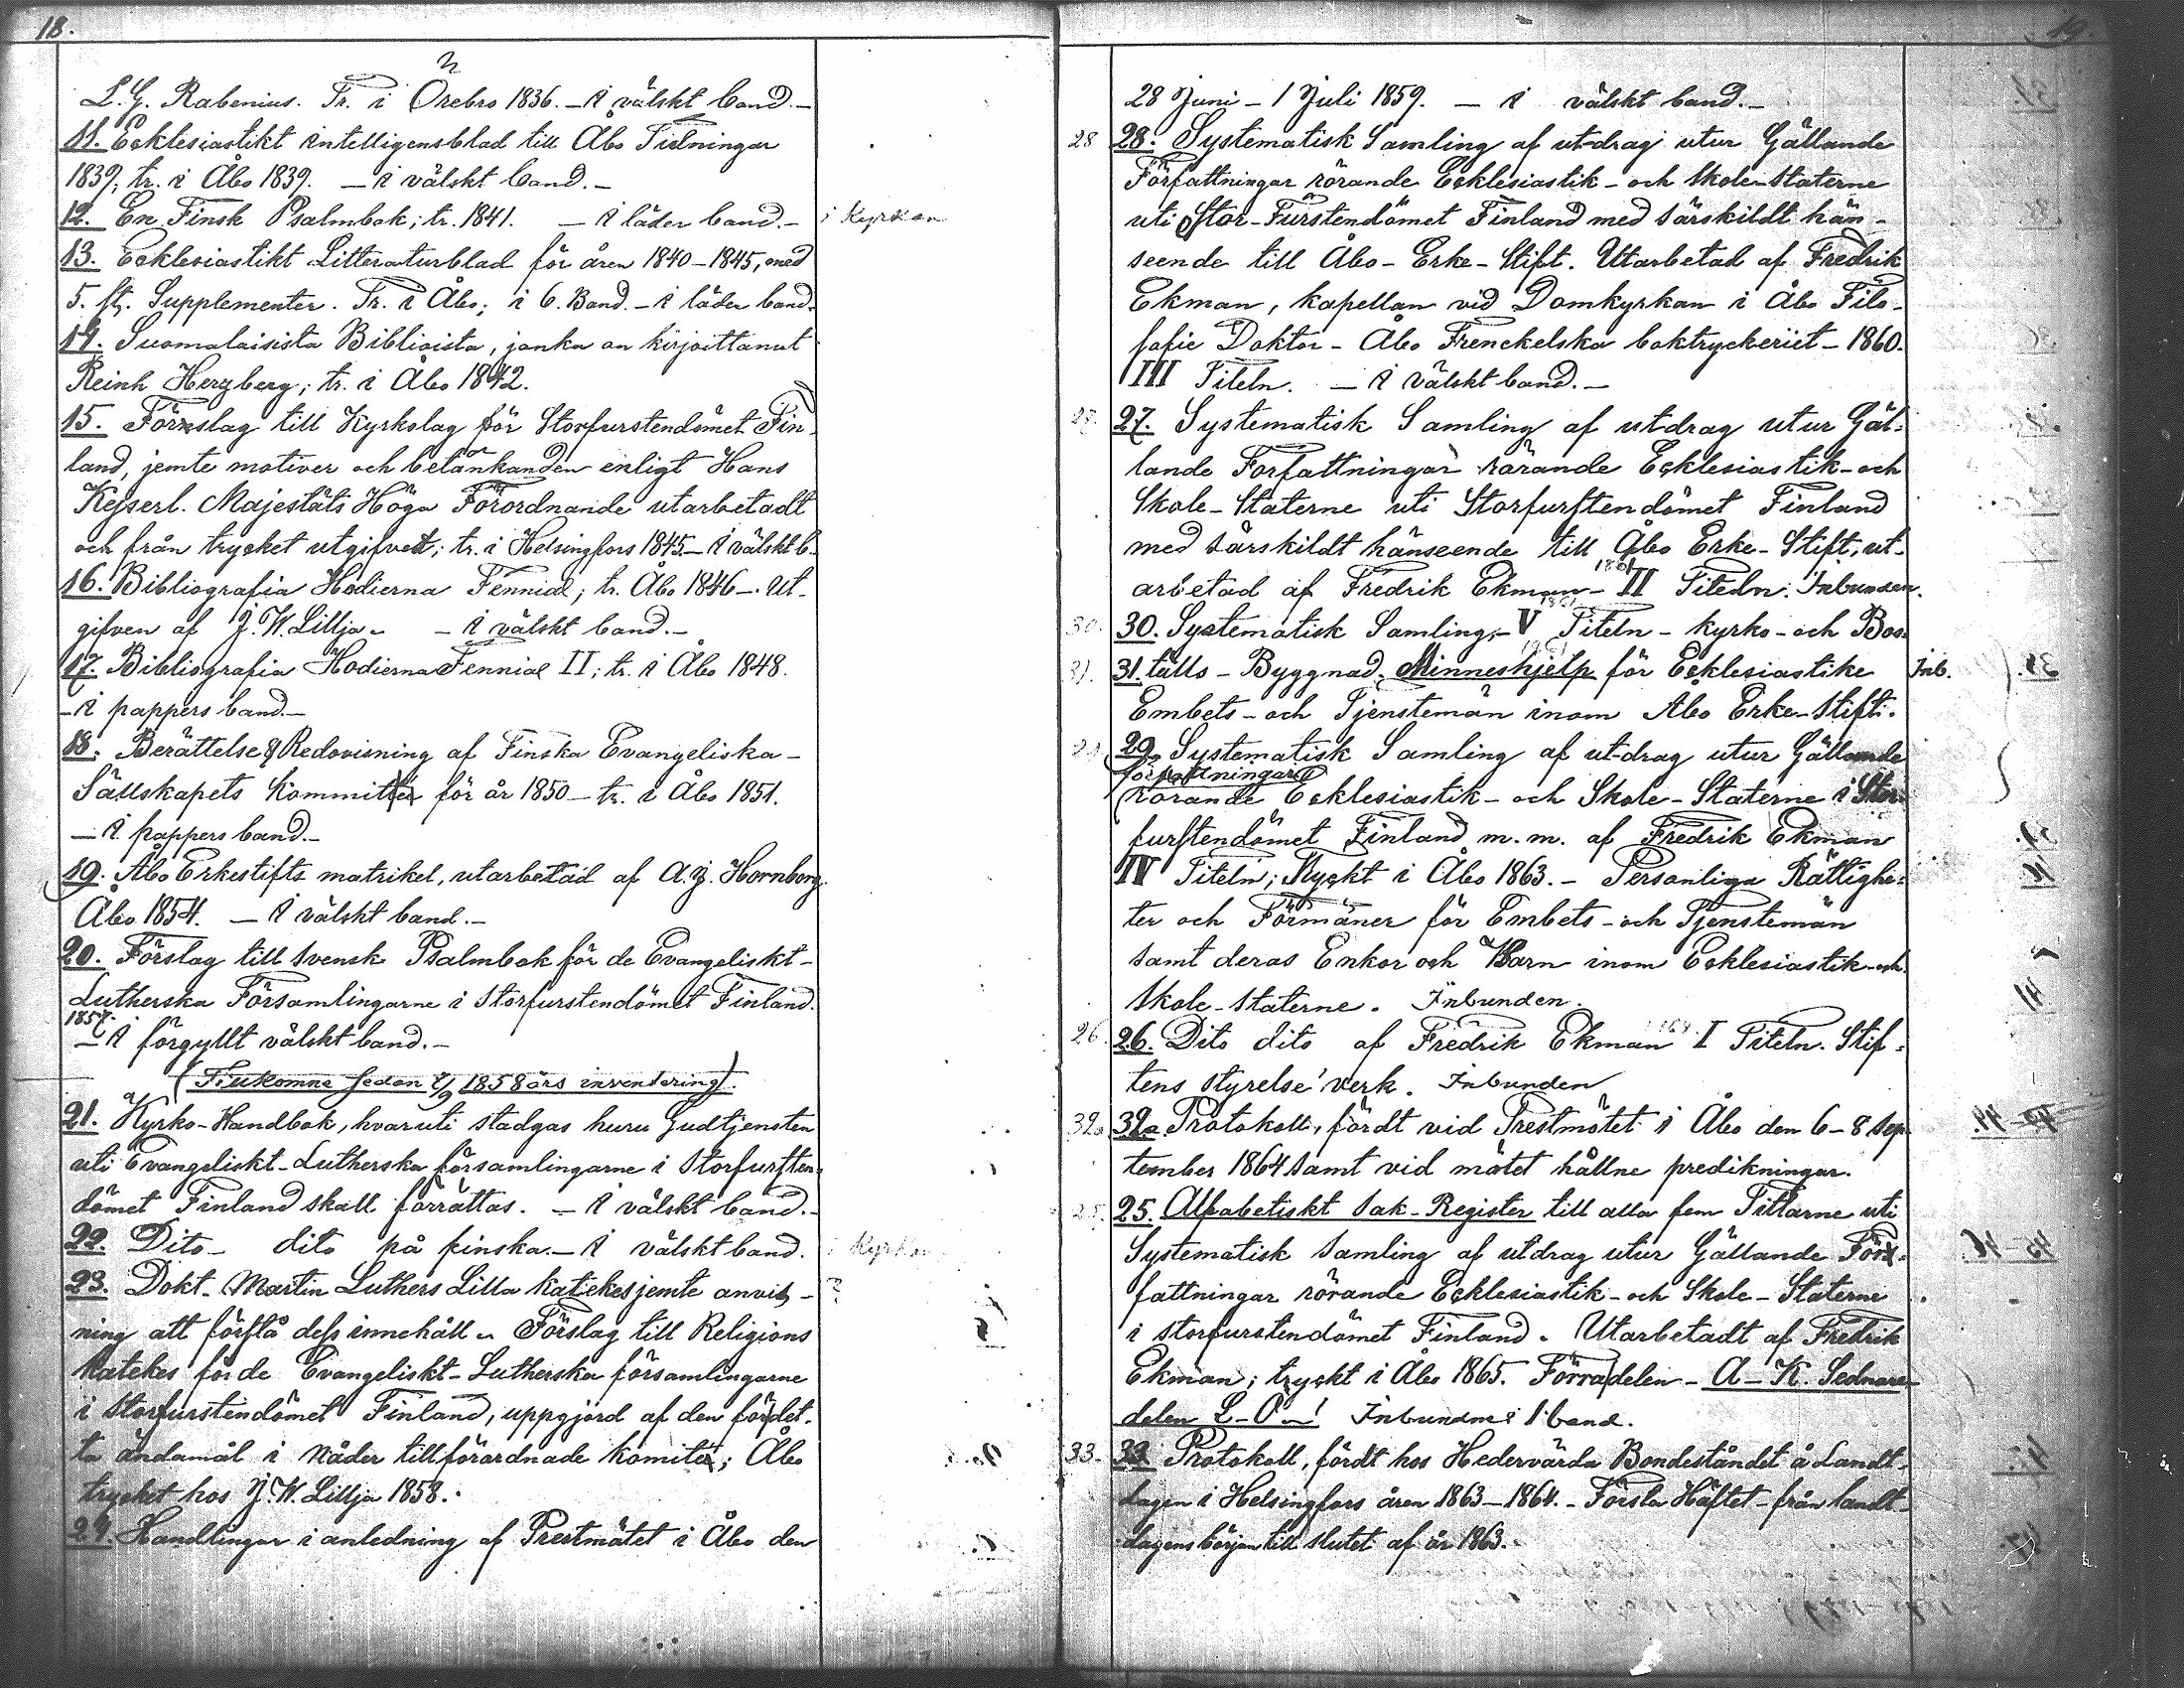 18.
L. G. Rabenius. Tr. i Örebro 1836. – i välskt band. –
11. Ecklesiastikt intelligensblad till Åbo Tidningar
1839; tr. i Åbo 1839. – i välskt band. –
12. En Finsk Psalmbok; tr. 1841. – i läder band. – i Kyrkan
13. Ecklesiastikt Litteraturblad för åren 1840–1845, med
5. st. Supplementer. Tr. i Åbo; i 6. Band. – i läder band.
14. Suomalaisista Biblioista, jonka on kirjoittanut
Reinh Herzberg; tr. i Åbo 1842.
15. Förslag till Kyrkolag för Storfurstendömet Fin-
land, jemte motiver och betänkanden enligt Hans
Kejserl. Majestäts Höga Förordnande utarbetadt
och från trycket utgifvet; tr. i Helsingfors 1845 – i välskt b.
16. Bibliografia Hodierna Fenniæ; tr. Åbo 1846 –. Ut-
gifven af J. W. Lillja. – i välskt band. –
17. Bibliografia Hodierna Fenniæ II; tr. i Åbo 1848.
– i pappers band. –
18. Berättelse & Redovisning af Finska Evangeliska –
Sällskapets Kommitté för år 1850 – tr. i Åbo 1851.
– i pappers band. –
19. Åbo Erkestifts matrikel, utarbetad af A. J. Hornborg.
Åbo 1854. – i välskt band. –
20. Förslag till svensk Psalmbok för de Evangeliskt-
Lutherska Församlingarne i Storfurstendömet Finland.
1857.
– i förgyllt välskt band. –
(Tillkomne sedan 2/9 1858 års inventering).
21. Kyrko-Handbok, hvaruti stadgas huru Gudtjensten
uti Evangeliskt-Lutherska församlingarne i Storfursten-
dömet Finland skall förrättas. – i välskt band. –
22. Dito – dito på finska. – i välskt band. i Kyrkan
23. Dokt. Martin Luthers Lilla katekes jemte anvis-
ning att förstå dess innehåll. Förslag till Religions
katekes för de Evangeliskt-Lutherska församlingarne
i storfurstendömet Finland, uppgjord af den för det-
ta ändamål i nåder tillförordnade komité; Åbo
trycket hos J. W. Lillja 1858.
24. Handlingar i anledning af Prestmötet i Åbo den
19.
28 Juni – 1 Juli 1859. – i välskt band. –
28 28. Systematisk Samling af utdrag utur Gällande
Författningar rörande Ecklesiastik- och Skole-Staterne
uti Stor-Furstendömet Finland med särskildt hän-
seende till Åbo-Erke-Stift. Utarbetad af Fredrik
Ekman, kapellan vid Domkyrkan i Åbo Filo-
sofie Doktor – Åbo Frenckelska boktryckeriet – 1860.
III Titeln. – i välskt band. –
27. 27. Systematisk Samling af utdrag utur Gäl-
lande Forfattningar rörande Ecklesiastik- och
Skole-Staterne uti Storfurstendömet Finland
med särskildt hänseende till Åbo Erke-Stift, ut-
arbetad af Fredrik Ekman – 1861 II Titeln. Inbunden.
30. 30. Systematisk Samling, – V Titeln – kyrko- och Bos-
31. 31. tälls-Byggnad. Minneshjelp för Ecklesiastike Inb.
Embets- och Tjensteman inom Åbo Erke-Stift.
29. 29. Systematisk Samling af utdrag utur Gällande
författningar
rörande Ecklesiastik- och Skole-Staterne i Stor-
furstendömet Finland m. m. af Fredrik Ekman
IV Titeln; Tryckt i Åbo 1863. – Personliga Rättighe-
ter och Förmåner för Embets- och Tjenstemän
samt deras Enkor och Barn inom Ecklesiastik- och
Skole-staterne. Inbunden.
26. 26. Dito dito af Fredrik Ekman I Titeln. Stif-
tens styrelse verk. Inbunden
32. 32. Protokoll, fördt vid Prestmötet i Åbo den 6–8 Sep-
tember 1864 samt vid mötet hållne predikningar.
25. 25. Alfabetiskt Sak-Register till alla fem Titlarne uti
Systematisk Samling af utdrag utur Gällande För-
fattningar rörande Ecklesiastik- och Skole-Staterne
i storfurstendömet Finland. Utarbetadt af Fredrik
Ekman; tryckt i Åbo 1865. Förra delen – A–K. Sednare
delen L–Ö –! Inbundne i 1 band.
33. 33 Protokoll, fördt hos Hedervärda Bondeståndet å Landt-
dagen i Helsingfors åren 1863–1864. – Första Häftet – från landt-
dagens början till slutet af år 1863.